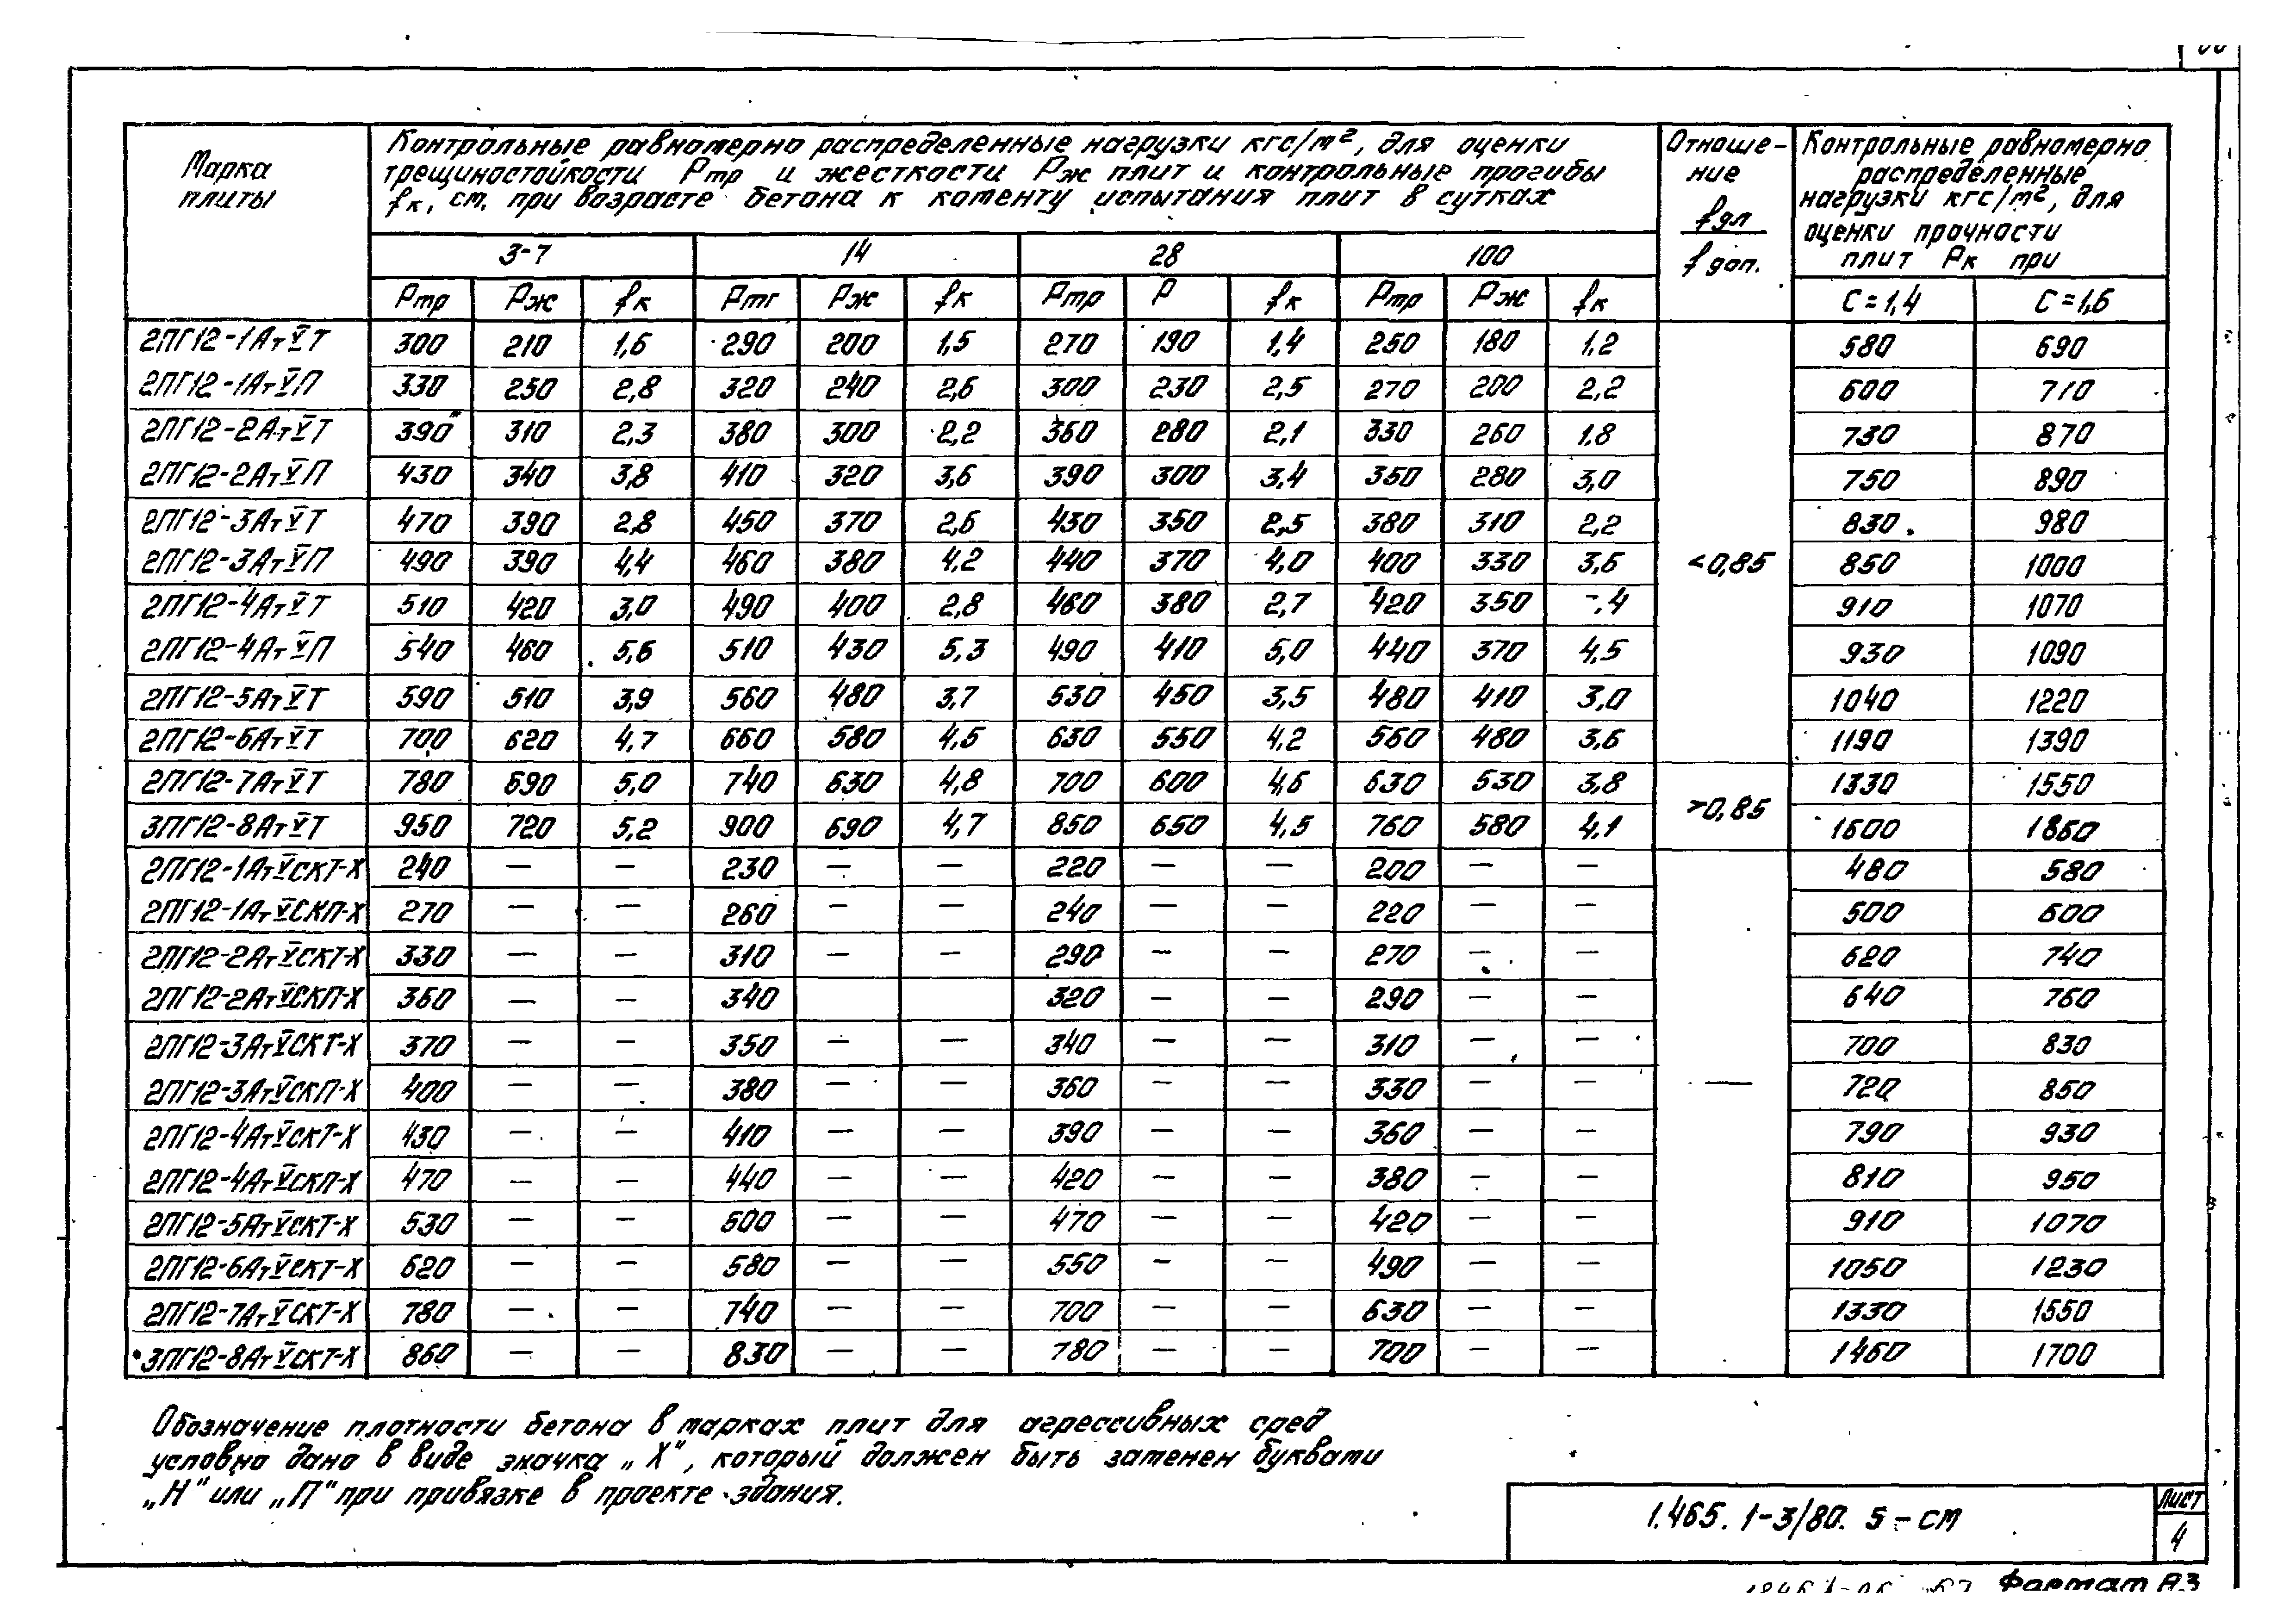 Марка плиты
Контрольные равномерно распределенные нагрузки кгс/м², для оценки
трещиностойкости Pтр и жесткости Pж плит и контрольные прогибы
fк, см, при возрасте бетона к моменту испытания плит в сутках
Отноше-
ние
fдл
fдоп.
Контрольные равномерно
распределенные
нагрузки кгс/м², для
оценки прочности
плит Pк при
3-7 14 28 100
Pтр Pж fк Pтг Pж fк Pтр P fк Pтр Pж fк С=1,4 С=1,6
2ПГ12-1АтVТ 300 210 1,6 290 200 1,5 270 190 1,4 250 180 1,2 580 690
2ПГ12-1АтVП 330 250 2,8 320 240 2,6 300 230 2,5 270 200 2,2 600 710
2ПГ12-2АтVТ 390 310 2,3 380 300 2,2 360 280 2,1 330 260 1,8 730 870
2ПГ12-2АтVП 430 340 3,8 410 320 3,6 390 300 3,4 350 280 3,0 750 890
2ПГ12-3АтVТ 470 390 2,8 450 370 2,6 430 350 2,5 380 310 2,2 830 980
2ПГ12-3АтVП 490 390 4,4 460 380 4,2 440 370 4,0 400 330 3,6 <0,85 850 1000
2ПГ12-4АтVТ 510 420 3,0 490 400 2,8 460 380 2,7 420 350 -.4 910 1070
2ПГ12-4АтVП 540 460 5,6 510 430 5,3 490 410 5,0 440 370 4,5 930 1090
2ПГ12-5АтVТ 590 510 3,9 560 480 3,7 530 450 3,5 480 410 3,0 1040 1220
2ПГ12-6АтVТ 700 620 4,7 660 580 4,5 630 550 4,2 560 480 3,6 1190 1390
2ПГ12-7АтVТ 780 690 5,0 740 630 4,8 700 600 4,6 630 530 3,8 >0,85 1330 1550
3ПГ12-8АтVТ 950 720 5,2 900 690 4,7 850 650 4,5 760 580 4,1 1600 1860
2ПГ12-1АтVСКТ-Х 240 — — 230 — — 220 — — 200 — — 480 580
2ПГ12-1АтVСКП-Х 270 — — 260 — — 240 — — 220 — — 500 600
2ПГ12-2АтVСКТ-Х 330 — — 310 — — 290 — — 270 — — 620 740
2ПГ12-2АтVСКП-Х 360 — — 340 320 — — 290 — — 640 760
2ПГ12-3АтVСКТ-Х 370 — — 350 — — 340 — — 310 — — 700 830
2ПГ12-3АтVСКП-Х 400 — — 380 — — 360 — — 330 — — — 720 850
2ПГ12-4АтVСКТ-Х 430 — — 410 — — 390 — — 360 — — 790 930
2ПГ12-4АтVСКП-Х 470 — — 440 — — 420 — — 380 — — 810 950
2ПГ12-5АтVСКТ-Х 530 — — 500 — — 470 — — 420 — — 910 1070
2ПГ12-6АтVСКТ-Х 620 — — 580 — — 550 — — 490 — — 1050 1230
2ПГ12-7АтVСКТ-Х 780 — — 740 — — 700 — — 630 — — 1330 1550
3ПГ12-8АтVСКТ-Х 860 — — 830 — — 780 — — 700 — — 1460 1700
Обозначение плотности бетона в марках плит для агрессивных сред
условно дано в виде значка „Х", который должен быть заменен буквами
„Н" или „П" при привязке в проекте здания.
1.465.1-3/80. 5-СМ
Лист
4
Формат А3